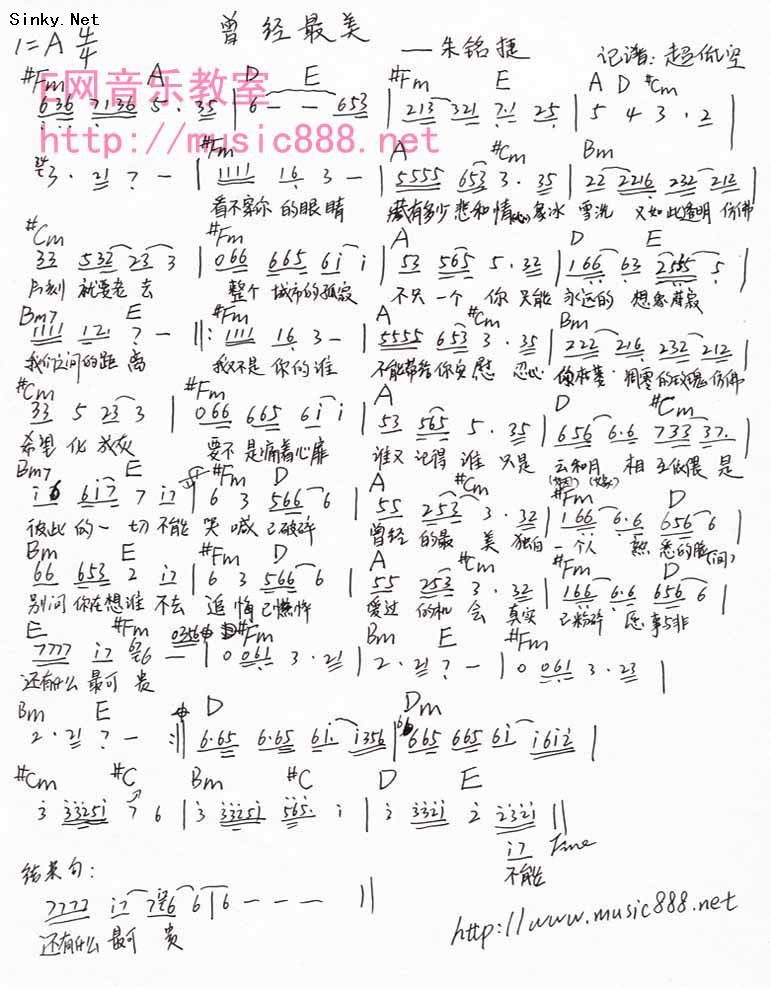 Sinky.Net
曾经最美
1=A 4/4
——朱铭捷
记谱:超低空
E网音乐教室
http://music888.net
#Fm A D E #Fm E A D #Cm
636 7136 5· 35 | 6 - - 653 | 213 321 7·1 25 | 5 4 3 · 2 |
#Fm A #Cm Bm
3 · 21 7 - | 1111 16 3 - | 5555 653 3 · 35 | 22 2216 232 212 |
看不穿你的眼睛 藏有多少悲和情 冰雪洗 又如此透明 仿佛
#Cm #Fm A D E
33 532 23 3 | 066 665 61 i | 53 565 5 · 32 | 166 63 2555 5 |
片刻就要老去 整个城市的孤寂 不只一个你 只能永远的想象
Bm7 E #Fm A #Cm Bm
1111 121 7 - ||: 1111 16 3 - | 5555 653 3 · 35 | 222 216 232 212 |
我们之间的距离 我又不是你的谁 不能带给你安慰 忍心 凋零的玫瑰 仿佛
#Cm #Fm A D #Cm
33 5 23 3 | 066 665 61 i | 53 565 5 · 35 | 656 6·6 733 37· |
希望化成灰 要不是痛着心扉 谁又记得谁 只是云和月 相互依偎 是
Bm7 E #Fm D A #Cm #Fm D
i6 617 7 i7 | 6 3 566 6 | 55 253 3 · 32 | 166 6·6 656 6 |
彼此的一切 不能哭喊 已破碎 曾经的最美 独自一个人 熟悉的脸
Bm E #Fm D A #Cm #Fm D
66 653 2 i7 | 6 3 566 6 | 55 253 3 · 32 | 166 6·6 656 6 |
别问你在想谁 不去追悔 已憔悴 爱过的机会 真实已粉碎 愿事与非
E #Fm #Fm Bm E #Fm
7777 i7 6 - | 0 061 3 · 21 | 2 · 21 7 - | 0 061 3 · 23 |
还有什么最可贵
Bm E D Dm
2 · 21 7 - :|| 6·65 6·65 61· i356 | 665 665 61 i612 |
#Cm #C Bm #C D E
3 33251 7 6 | 3 33251 565· i | 2 3321 2 2321 ||
i7 Fine
不能
结束句:
7777 i7 76 6 | 6 - - - ||
还有什么最可贵
http://www.music888.net